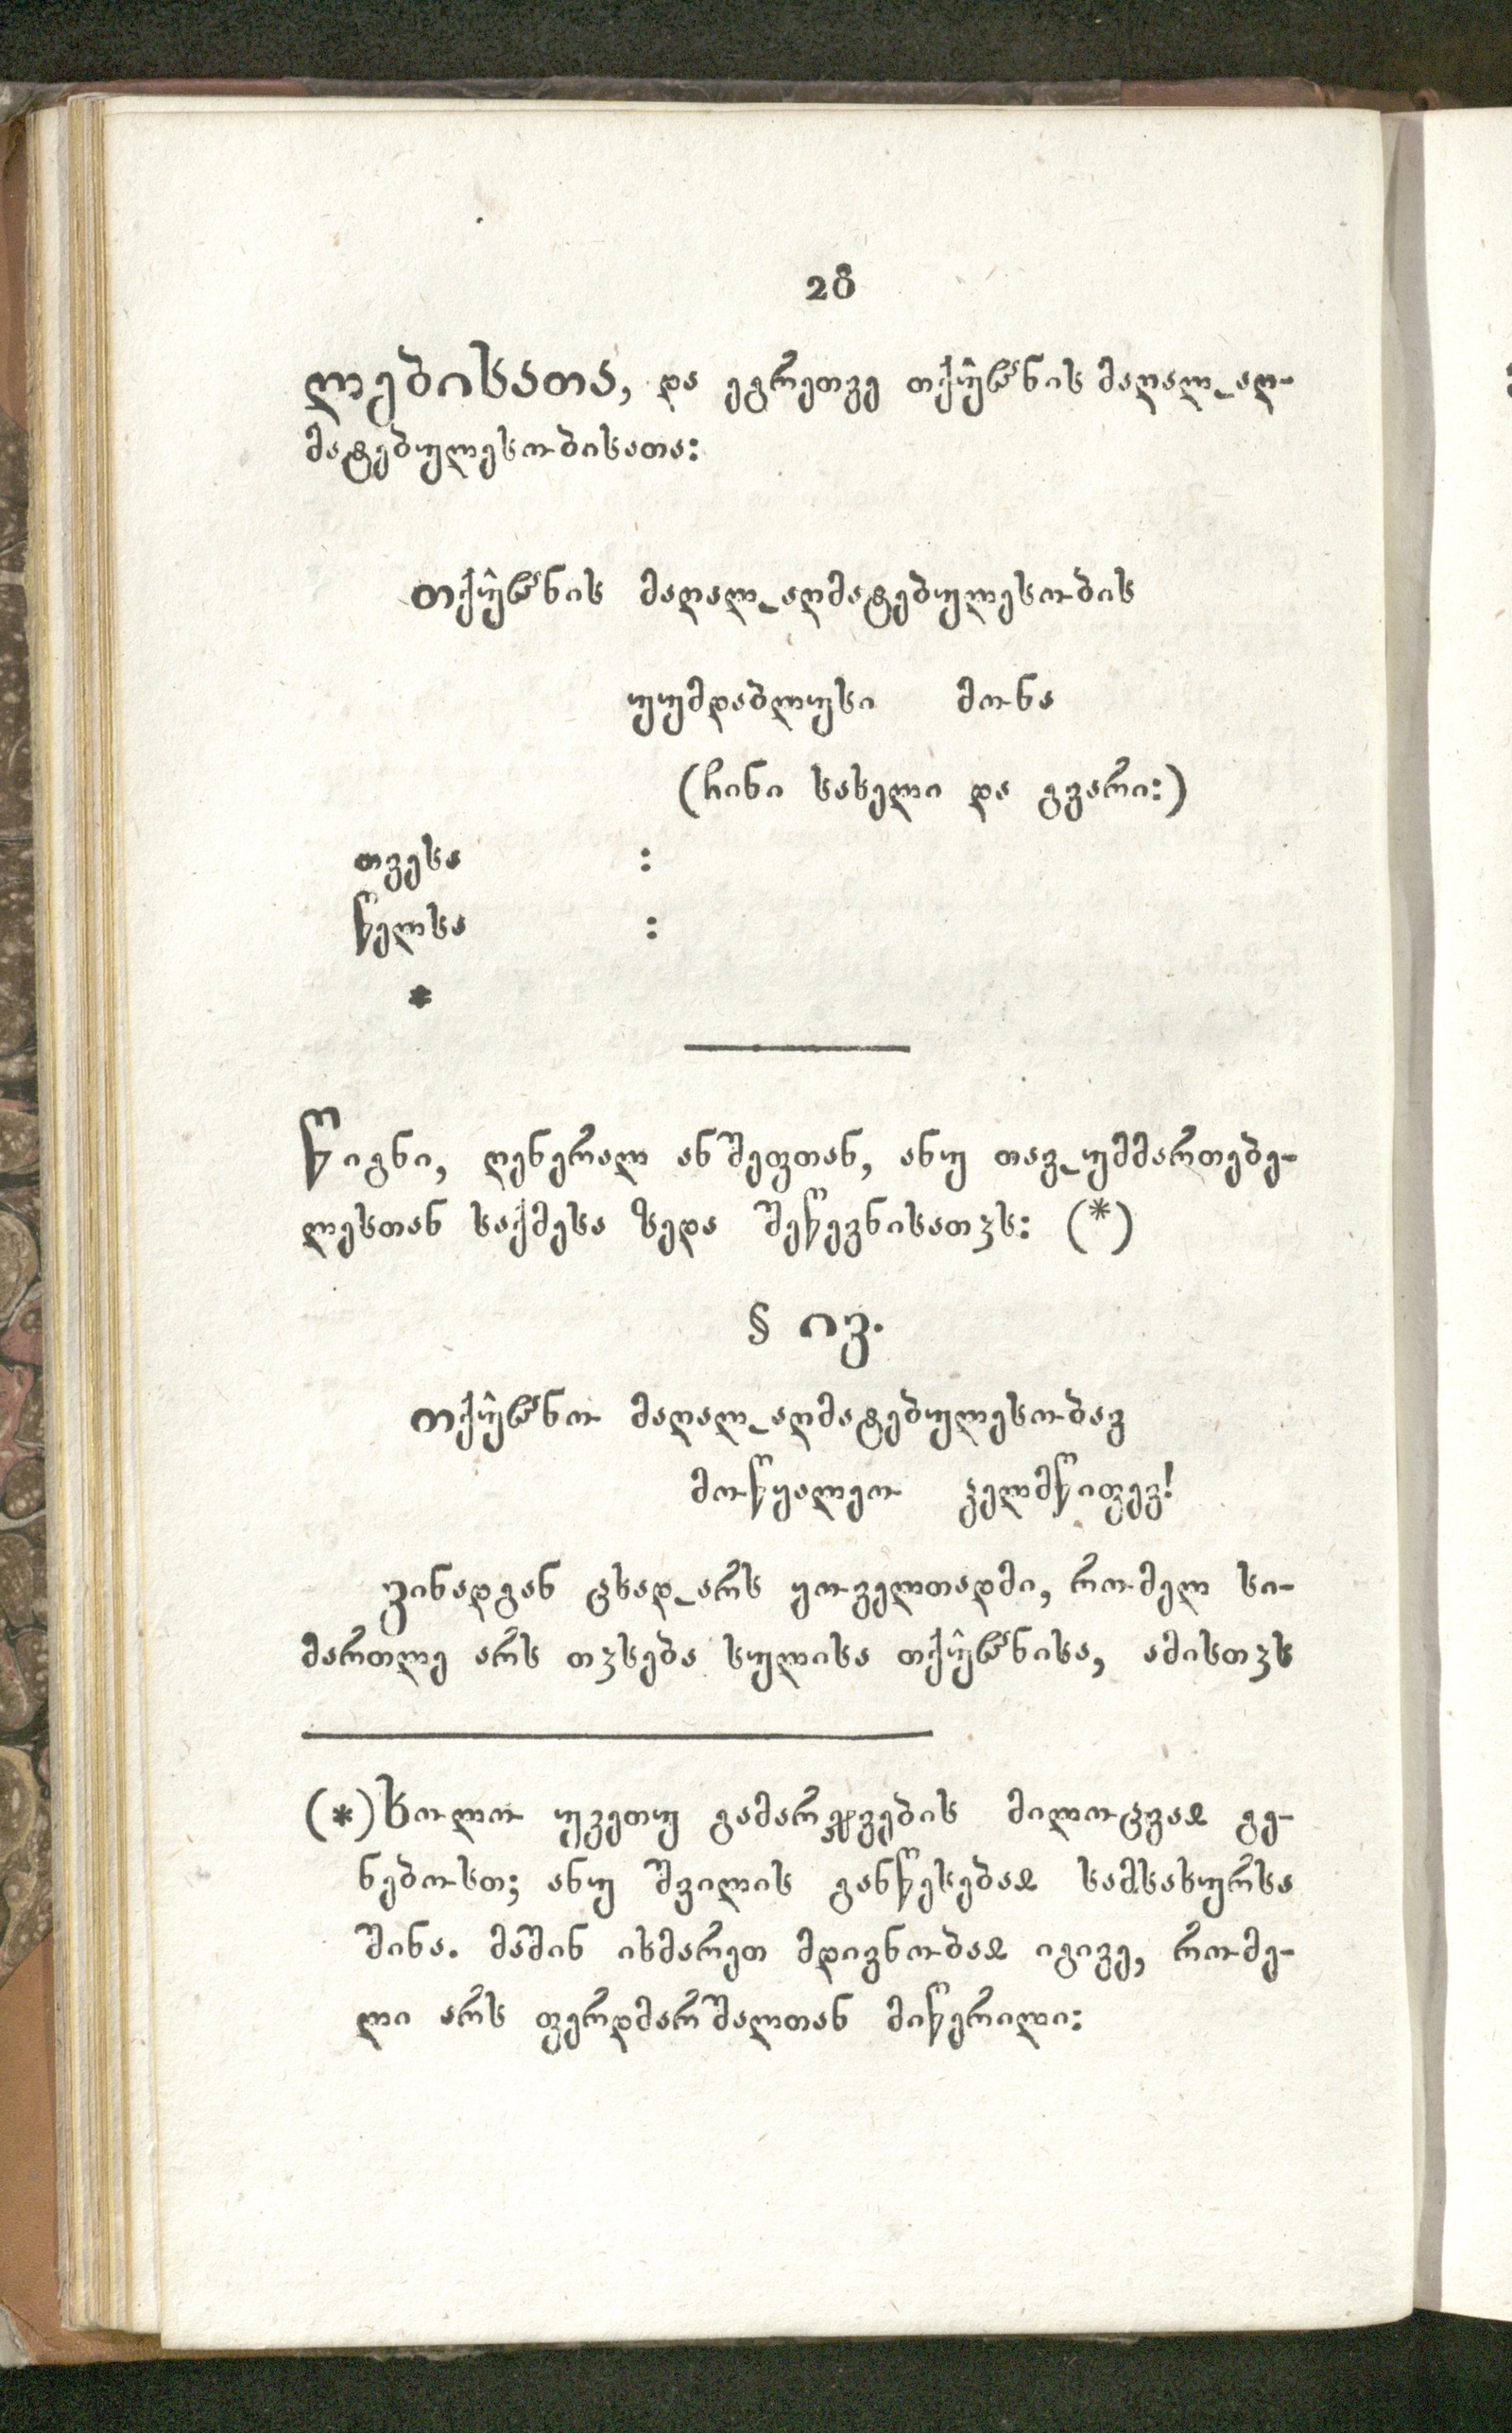 28
ლებისათა, და ეგრეთვე თქჳენის მაღალ_აღ-
მატებულესობისათა:
თქჳენის მაღალ_აღმატებულესობის
უუმდაბლესი მონა
(ჩინი სახელი და გვარი:)
თვესა :
წელსა :
*
წიგნი, ღენერალ ანშეფთან, ანუ თავ_უმმართებე-
ლესთან საქმესა ზედა შეწევნისათჳს: (*)
§ ივ.
თქჳენო მაღალ_აღმატებულესობავ
მოწყალეო ჴელმწიფევ!
ვინადგან ცხად_არს ყოველთადმი, რომელ სი-
მართლე არს თჳსება სულისა თქჳენისა, ამისთჳს
(*) ხოლო უკეთუ გამარჯვების მილოცვაჲ გე-
ნებოსთ; ანუ შვილის განწესებაჲ სამსახურსა
შინა. მაშინ იხმარეთ მდივნობაჲ იგივე, რომე-
ლი არს ფერდმარშალთან მიწერილი: